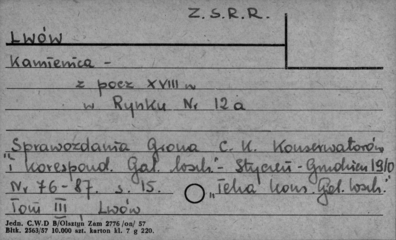 Z.S.R.R.
Lwów
Kamienica -
z pocz XVIII w
w Rynku Nr 12a
Sprawozdania Grona C. K. Konserwatorów
"i korespond. Gal. wsch." - Styczeń - Grudzień 1910
Nr 76-87. s. 15. "Teka Kons. Gal. wsch."
Tom III Lwów
Jedn. C.W.D B/Olsztyn Zam 2776 /on/ 57
Bltk. 2563/57 10.000 szt. karton kl. 7 g 220.